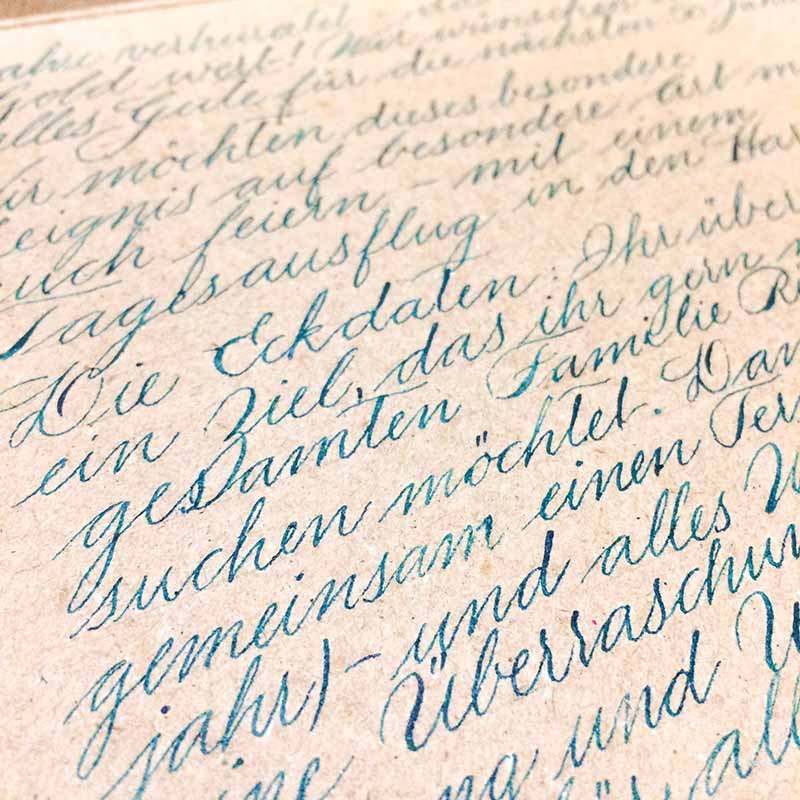 Jahre verheiratet
Gold wert! Wir wünschen
alles Gute für die nächsten 50 Jahr
Wir möchten dieses besondere
Ereignis auf besondere Art m
euch feiern - mit einem
Tagesausflug in den Har
Die Eckdaten: Ihr über
ein Ziel, das ihr gern m
gesamten Familie R
suchen möchtet. Dan
gemeinsam einen Ter
jahr) - und alles W
eine Überraschun
und W
für all